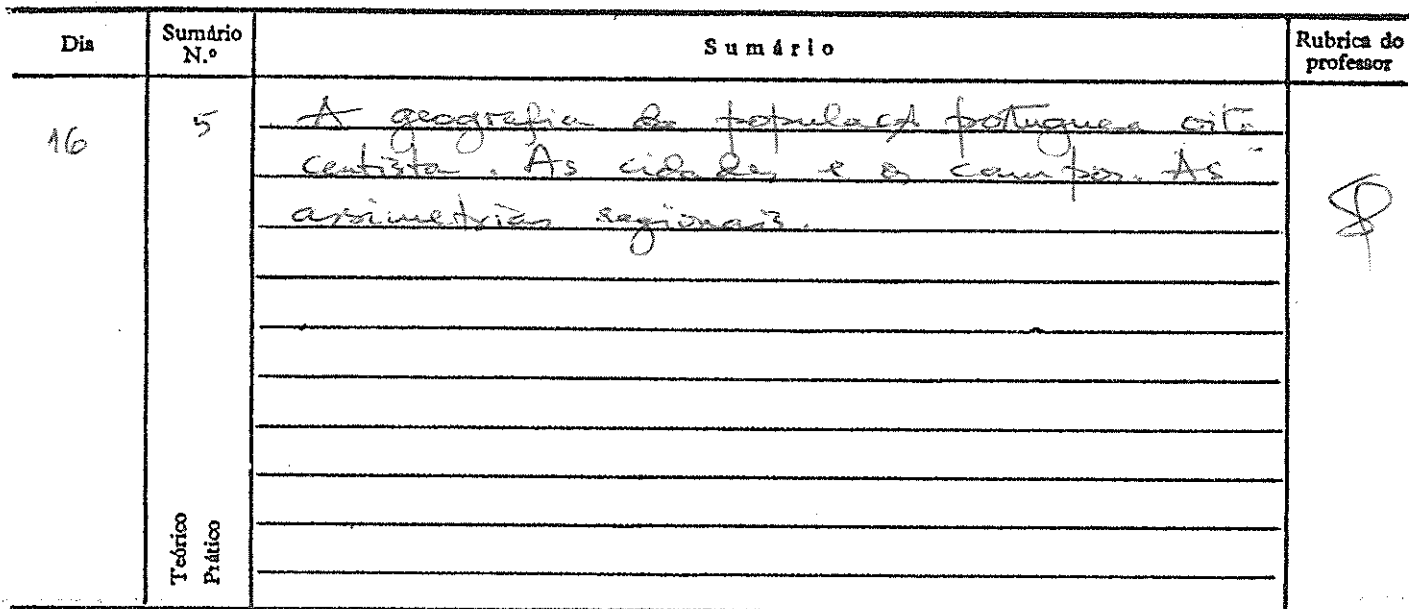 Dia Sumário N.º Sumário Rubrica do professor
16 5 A geografia da população portuguesa oito-
centista. As cidades e os campos. As
assimetrias regionais.
Teórico
Prático